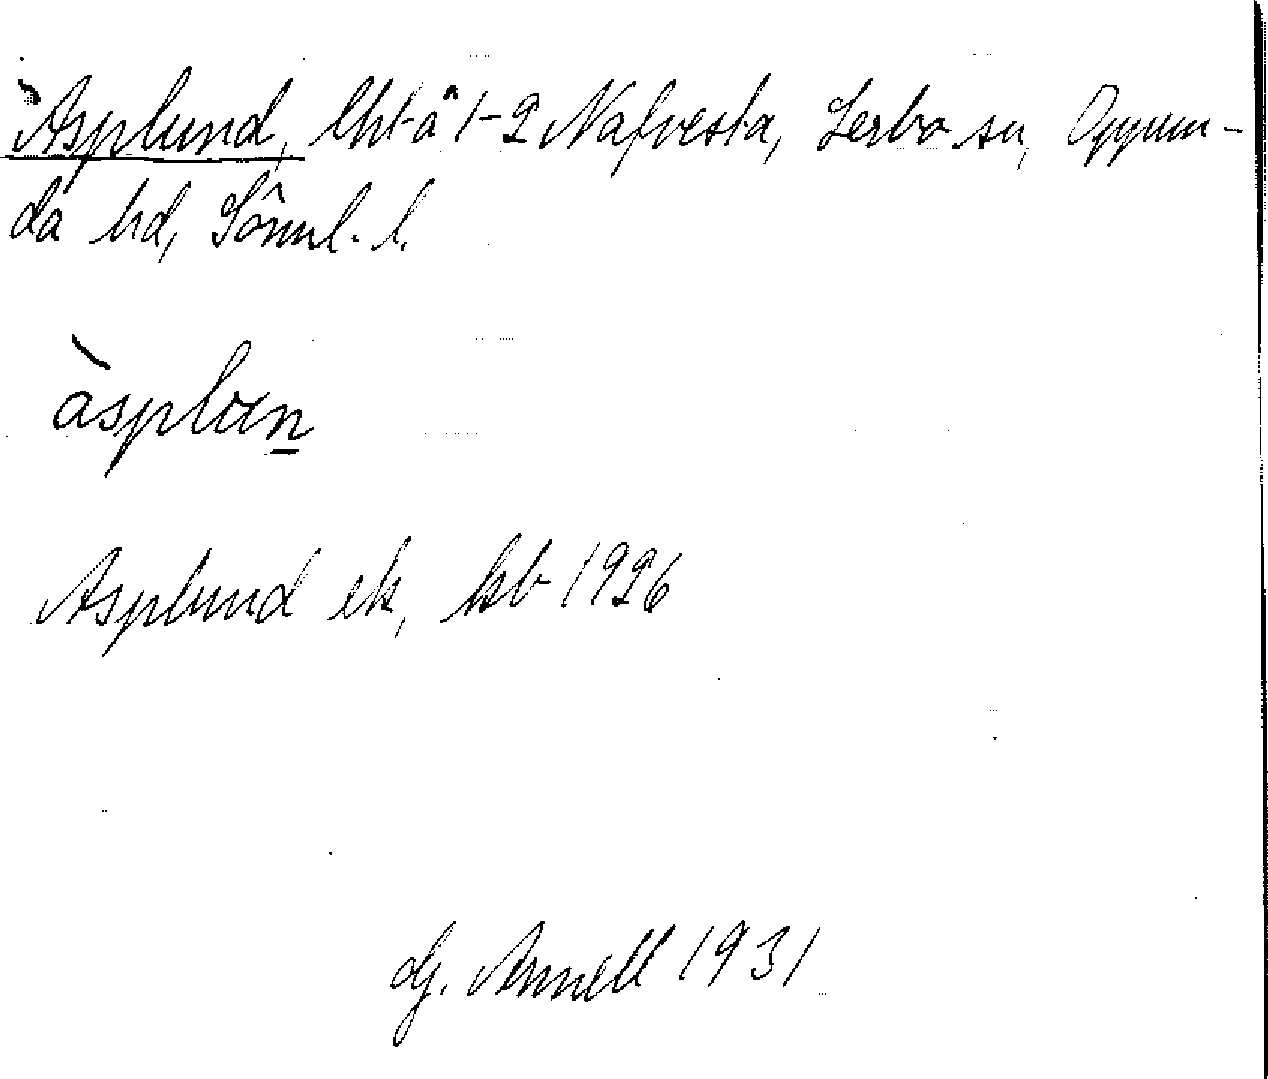 `Asplund, lht å 1-2 Nafvesta, Lerbo sn, Oppun-
da hd, Sörml. l.
àsplɷn
Asplund ek, kb 1926
G. Arnell 1931